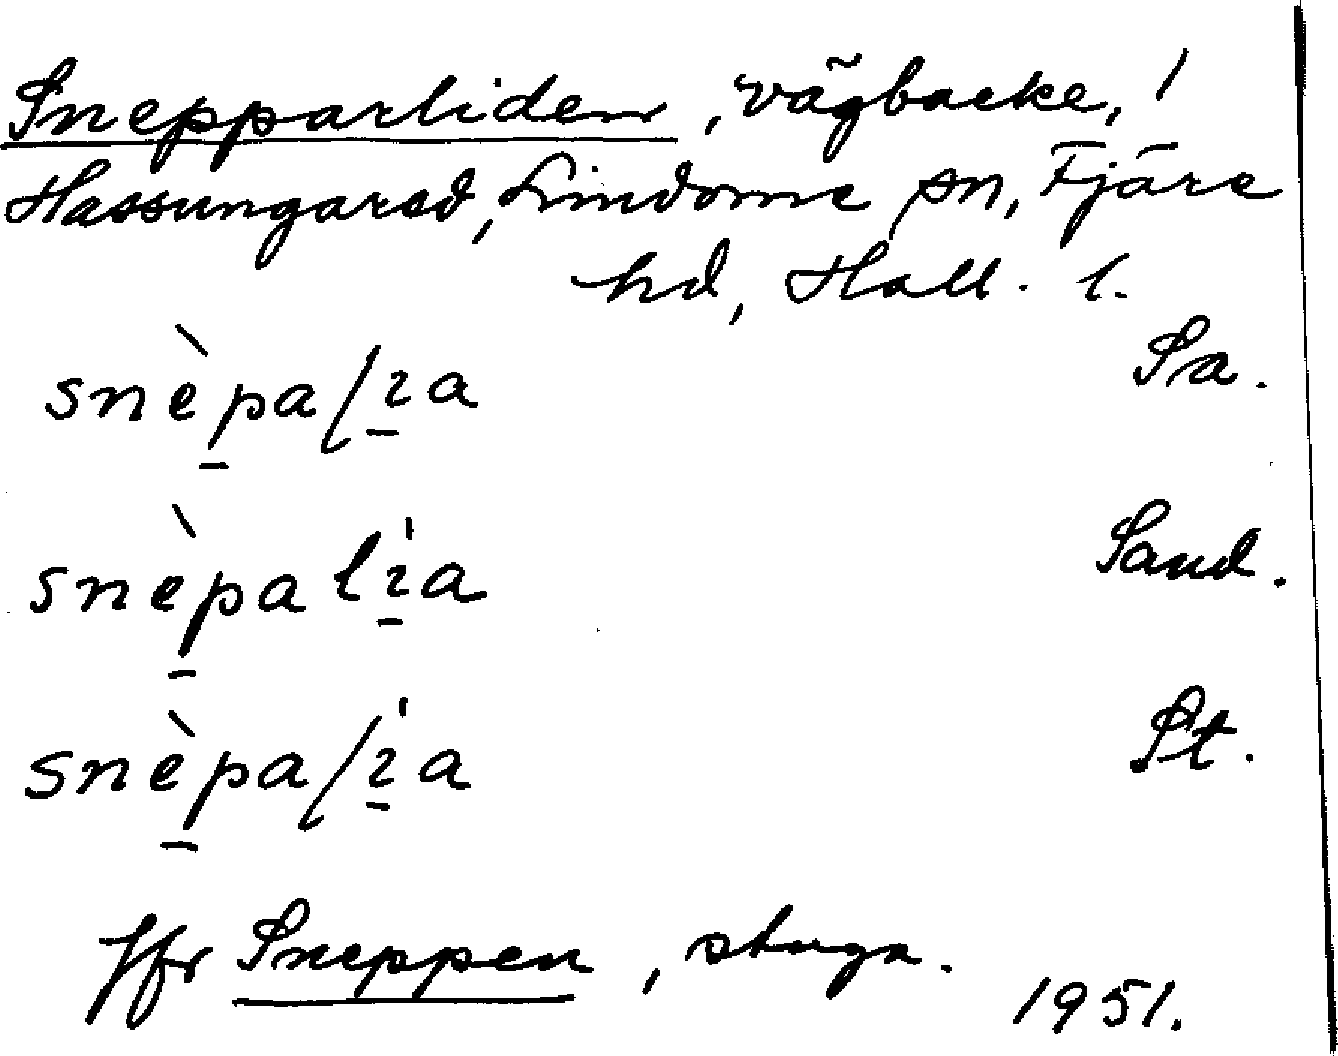 Snepparliden, vägbacke, /
Hassungared, Lindome sn, Fjäre
hd, Hall. l.
snèpalıa Sa.
snèpalıa Sand.
snèpalıa St.
Jfr Sneppen, stuga.
1951.